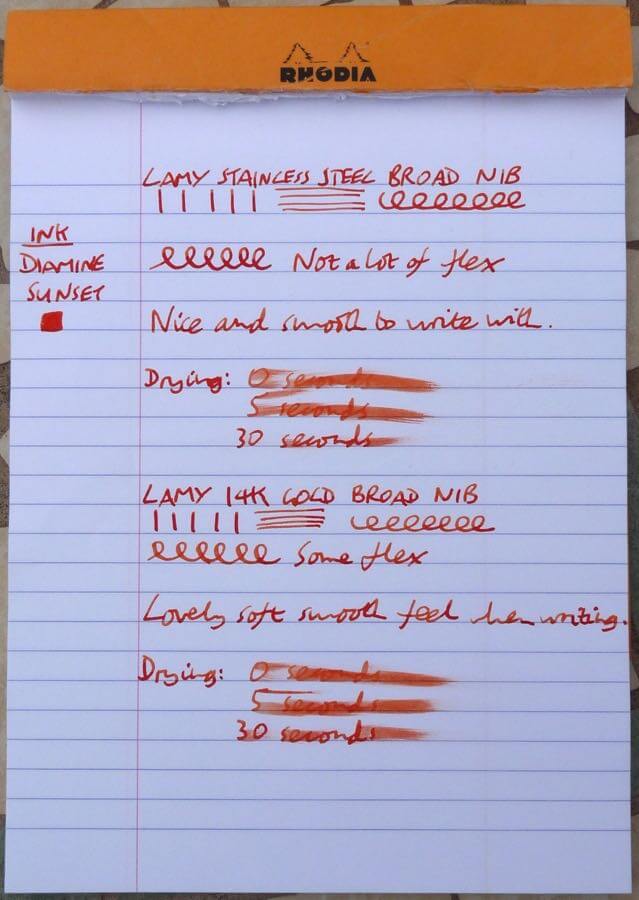 RHODIA
LAMY STAINLESS STEEL BROAD NIB
INK
DIAMINE
SUNSET
Not a lot of flex
Nice and smooth to write with.
Drying: 0 seconds
5 seconds
30 seconds
LAMY 14K GOLD BROAD NIB
Some flex
Lovely soft smooth feel when writing.
Drying: 0 seconds
5 seconds
30 seconds